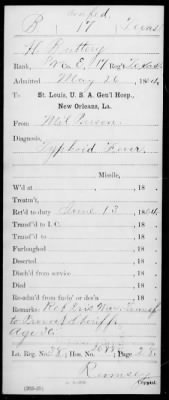 Confed.
B 17 Texas
H Buttery
Rank, Co. E, 17 Reg't Texas
Admitted May 26, 1864
To St. Louis, U. S. A. Gen'l Hosp.,
New Orleans, La.
From Mil Prison
Diagnosis,
Typhoid Fever
Missile,
W'd at , 18 .
Treatm't,
Ret'd to duty June 13, 1864.
Transf'd to I. C. , 18 .
Transf'd to , 18 .
Furloughed , 18 .
Deserted , 18 .
Disch'd from service , 18 .
Died , 18 .
Re-adm'd from furlo' or des'n , 18 .
Remarks: Ret Pris War
to Provost Sheriff
Age 36
La. Reg. No. 28; Hos. No. ; Page 28
Rumsey
Copyist.